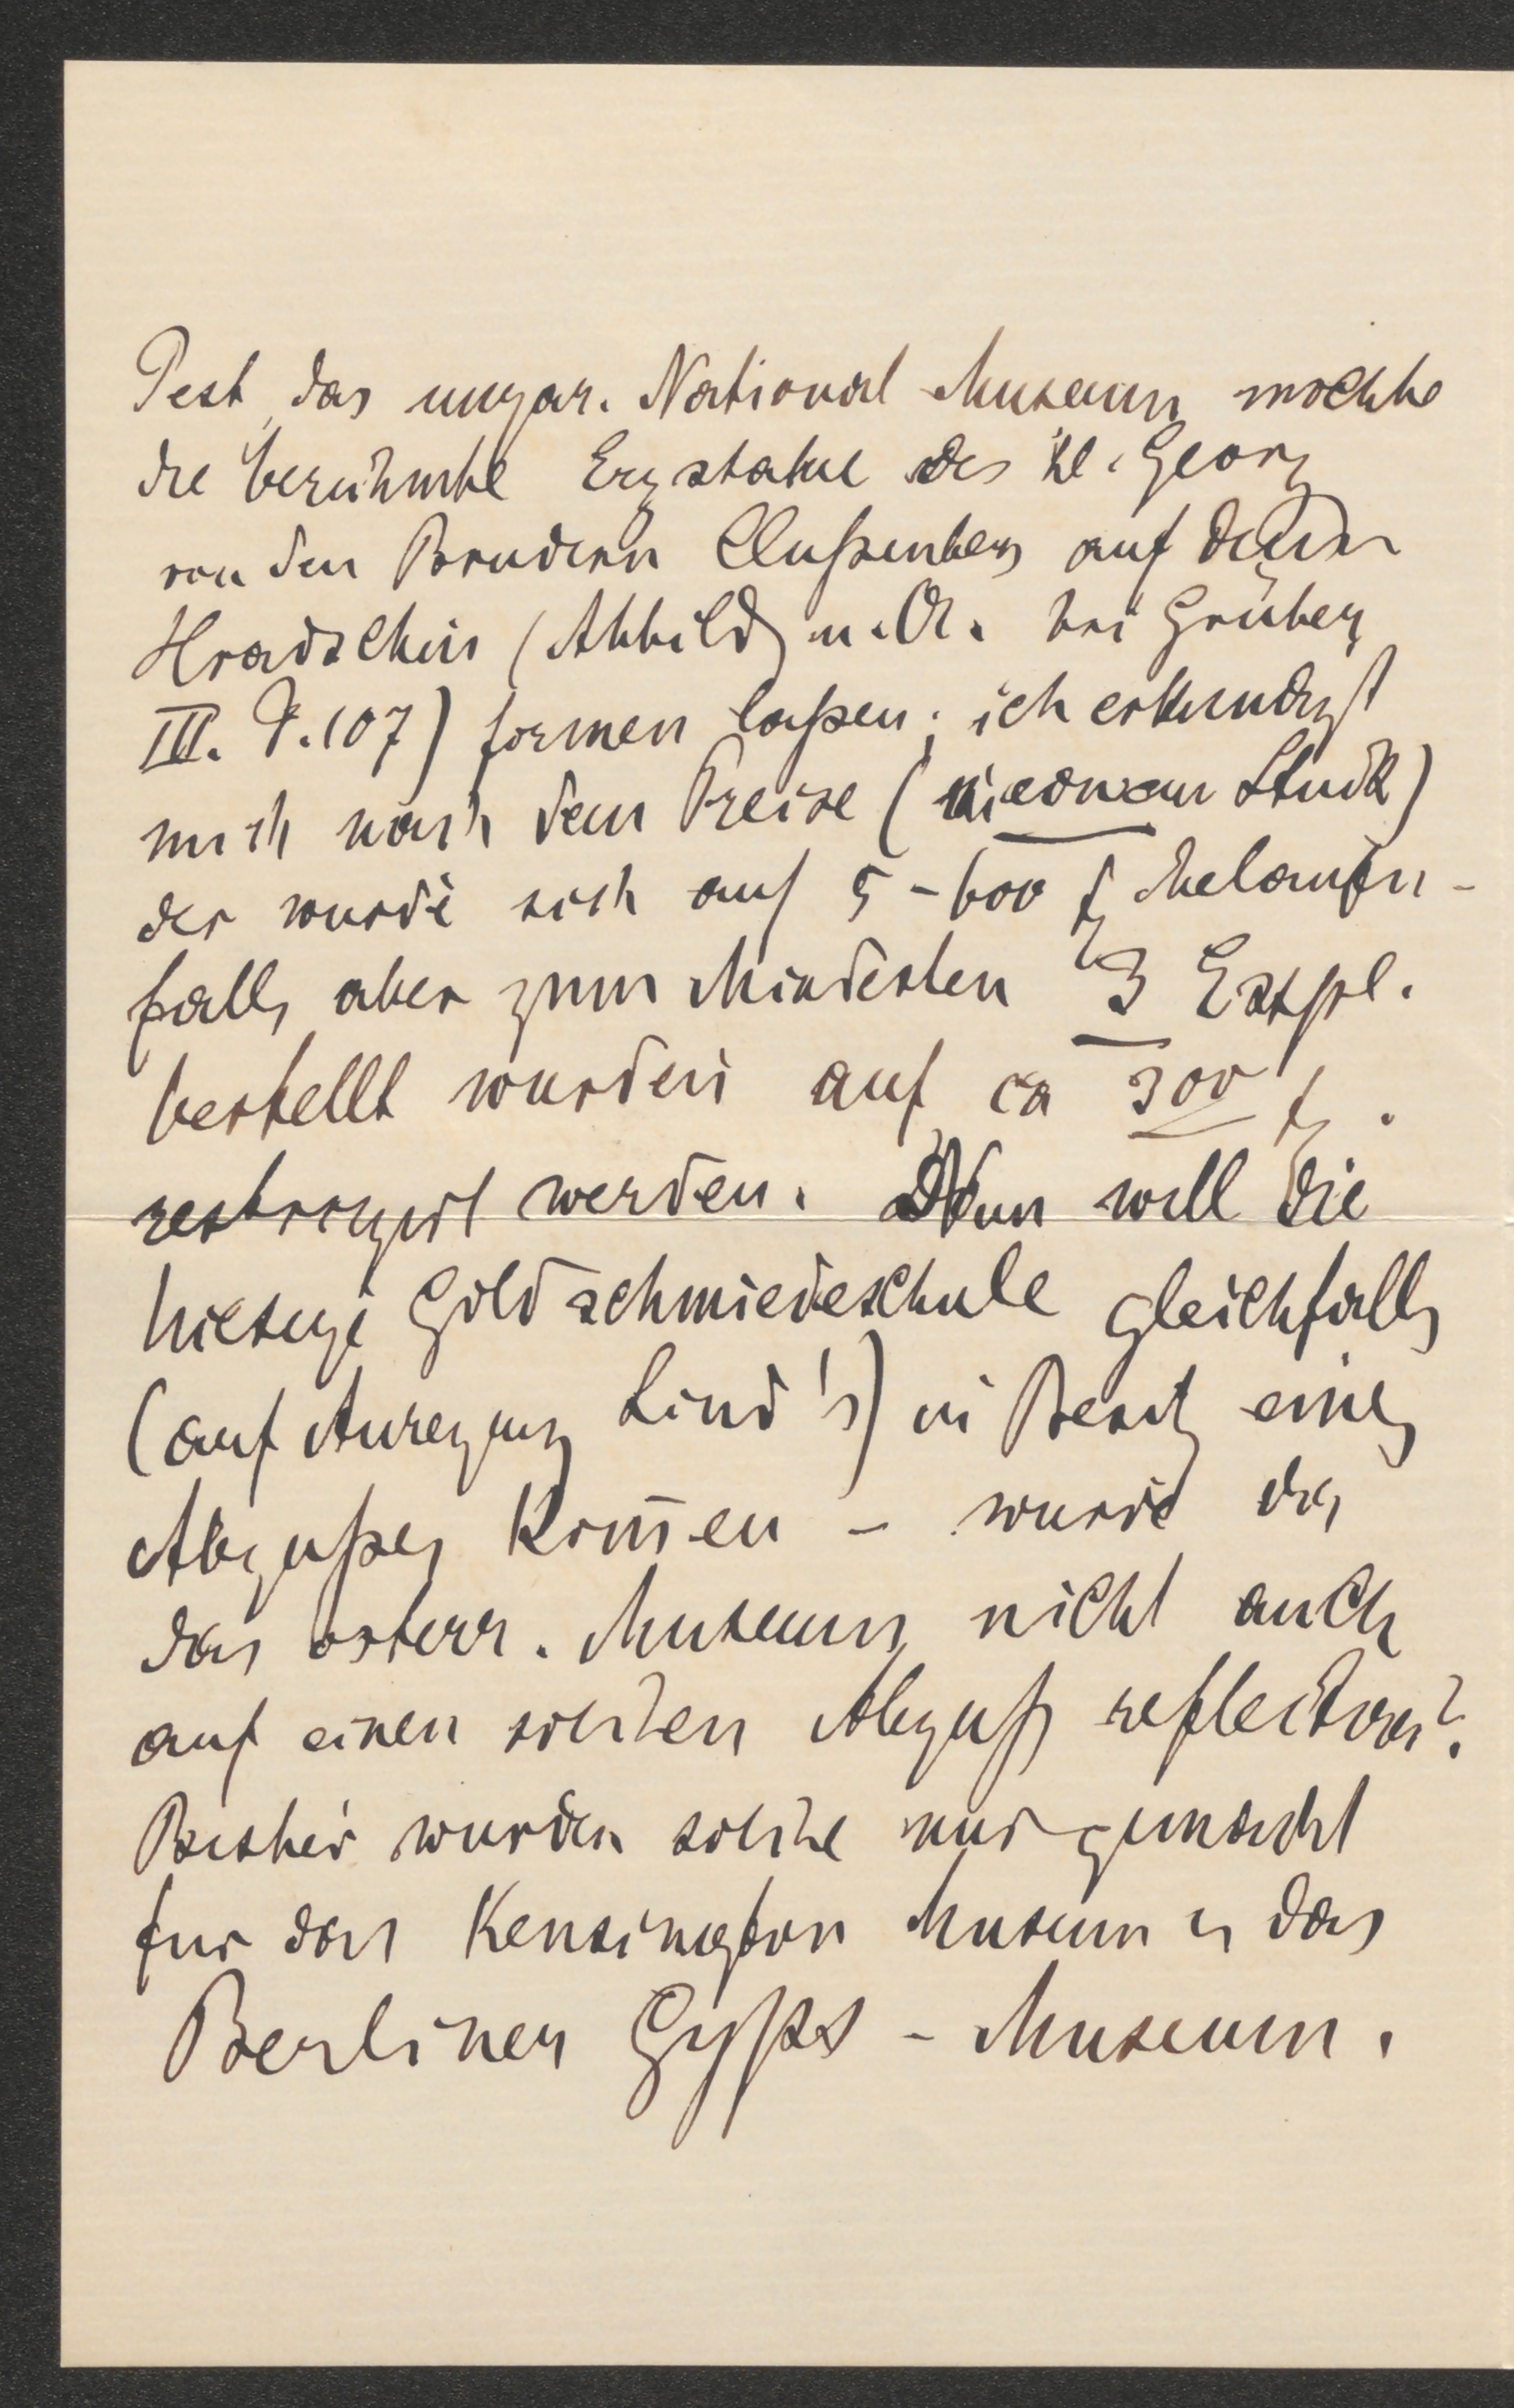 Pest, das ungar. National-Museum möchte
die berühmte Erzstatue des hl. Georg
von den Brüdern Clussenberg auf dem
Hradschin (Abbildg u. A. bei Grueber
III. P. 107) formen laßen; ich erkundigt
mich nach dem Preise ( Stück)
der würde sich auf 5-600 f belaufen -
falls aber zum Mindesten 3 Expl.
bestellt würden auf ca 300 f.
restringirt werden. Nun will die
hiesige Goldschmiedeschule gleichfalls
(auf Anregung Lind's) in Besitz eines
Abgußes kom̅en - würde da
das österr. Museum nicht auch
auf einen solchen Abguß reflectiren?
Bisher wurden solche nur gemacht
für das Kensington Museum u das
Berliner Gyps-Museum.